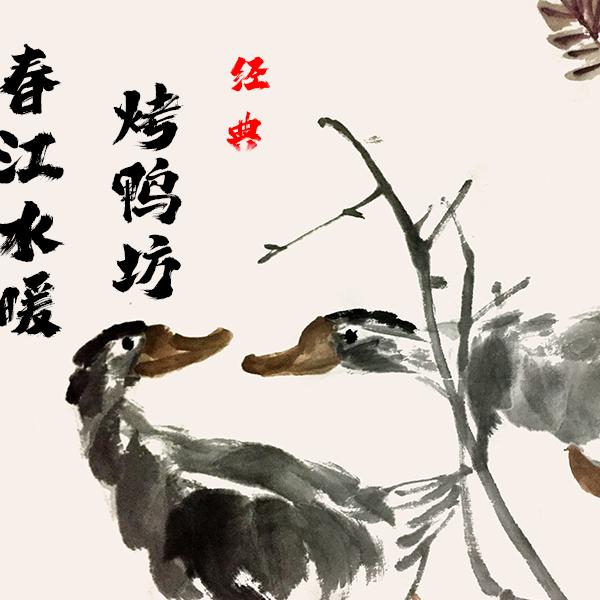 春江水暖
烤鸭坊
经典